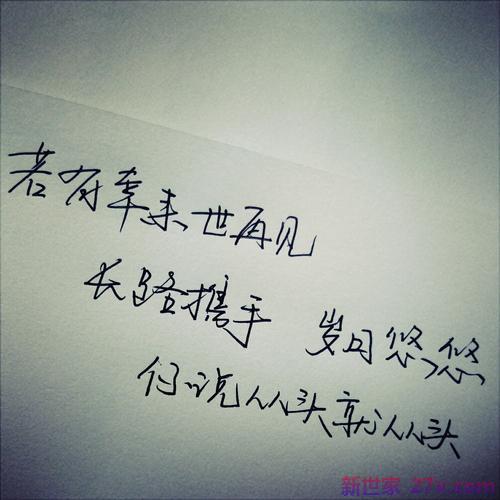 若有幸来世再见
长路携手 岁月悠悠
你说从头就从头
新世家 27x.com